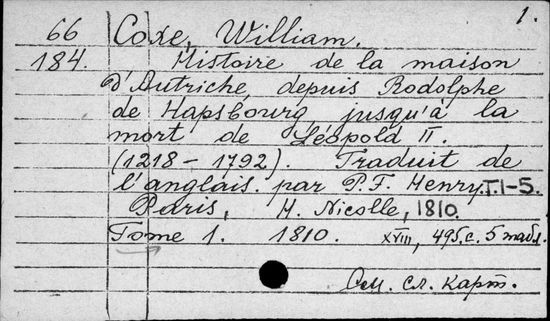 1.
66 Coxe, William.
184. Histoire de la maison
d'Autriche, depuis Rodolphe
de Hapsbourg, jusqu'à la
mort de Léopold II.
(1218 - 1792). Traduit de
l'anglais. par P.F. Henry. T.1-5.
Paris, H. Nicolle, 1810.
Tome 1. 1810. XVIII, 495 c. 5 табл.
См. сл. карт.